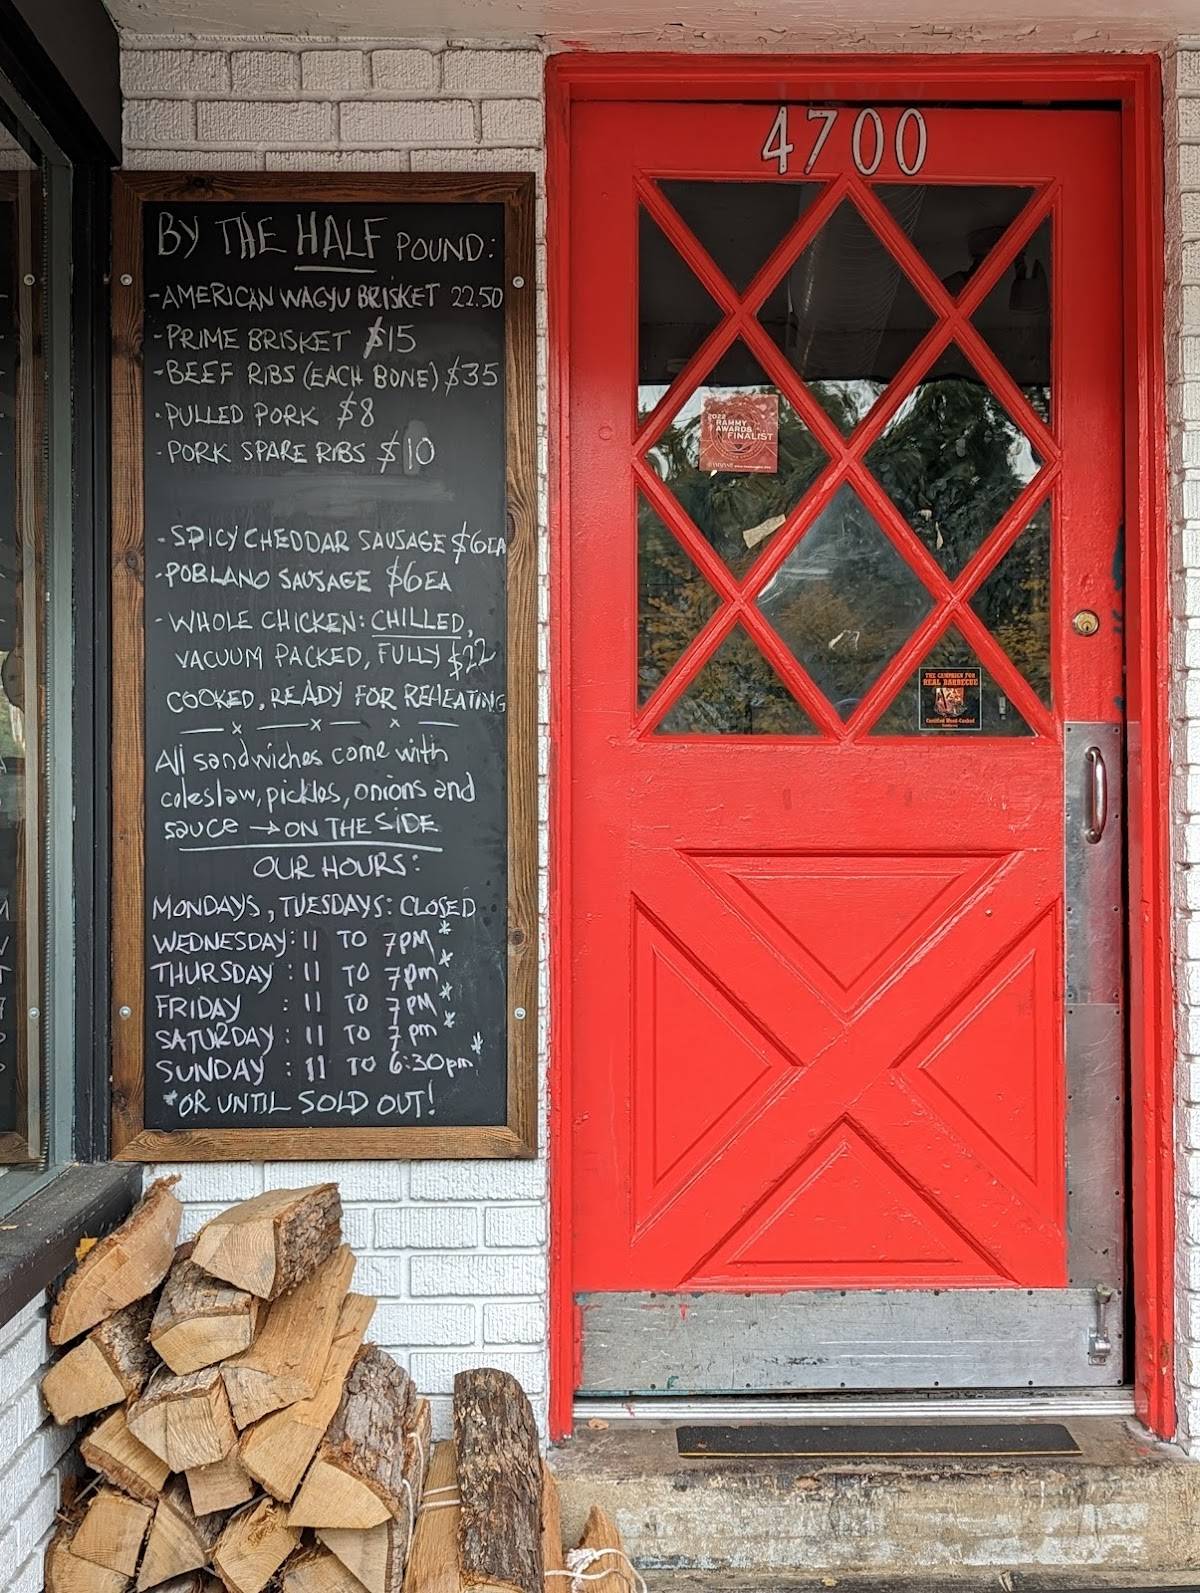 BY THE HALF POUND:
-AMERICAN WAGYU BRISKET 22.50
-PRIME BRISKET $15
-BEEF RIBS (EACH BONE) $35
·PULLED PORK $8
·PORK SPARE RIBS $10
·SPICY CHEDDAR SAUSAGE $6EA
·POBLANO SAUSAGE $6EA
-WHOLE CHICKEN: CHILLED,
VACUUM PACKED, FULLY $22
COOKED, READY FOR REHEATING
— x — x — x —
All sandwiches come with
coleslaw, pickles, onions and
sauce → ON THE SIDE
OUR HOURS:
MONDAYS, TUESDAYS: CLOSED
WEDNESDAY: 11 TO 7PM*
THURSDAY : 11 TO 7pm*
FRIDAY : 11 TO 7PM*
SATURDAY : 11 TO 7pm*
SUNDAY : 11 TO 6:30pm*
*OR UNTIL SOLD OUT!
4700
2022
RAMMY
AWARDS
FINALIST
THE CAMPAIGN FOR
REAL BARBECUE
Certified Wood-Cooked